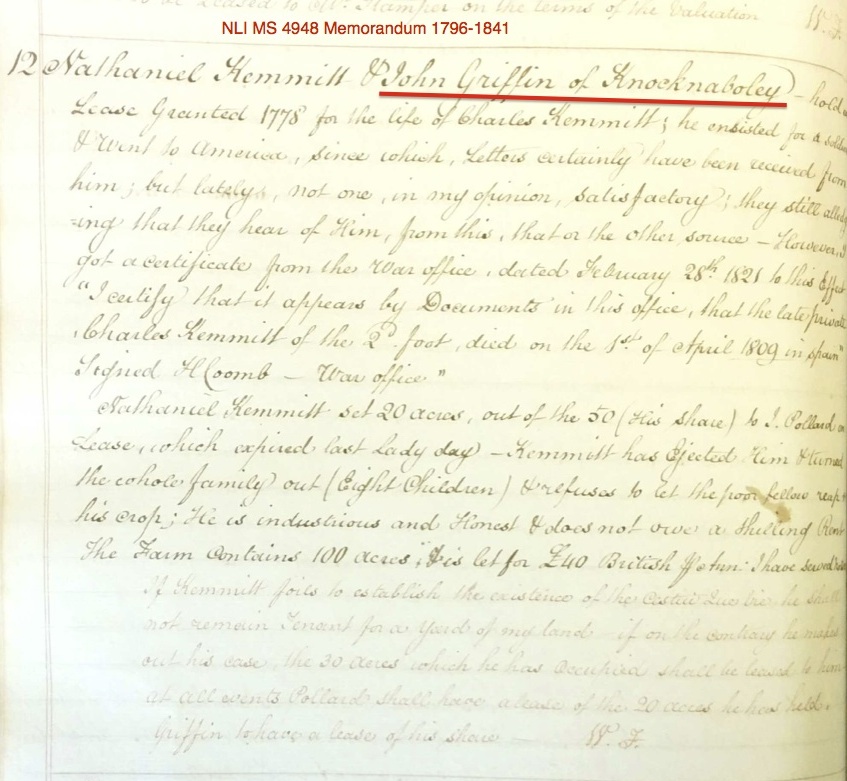 to be Leased to Mr. Stamper on the terms of the Valuation W. F.
NLI MS 4948 Memorandum 1796-1841
12 Nathaniel Kemmitt & John Griffin of Knocknaboley - hold
Lease Granted 1778 for the life of Charles Kemmitt; he enlisted for a
& Went to America, since which, Letters certainly have been received from
him; but lately, not one, in my opinion, satisfactory; they still alledg
=ing that they hear of Him, from this, that or the other source - However, I
got a certificate from the War office, dated February 28th 1821 to this Effect
"I certify that it appears by Documents in this office, that the late private
Charles Kemmitt of the 2d foot, died on the 1st of April 1809 in spain"
Signed H Coomb - War office"
Nathaniel Kemmitt set 20 acres, out of the 50 (His share) to J. Pollard on
Lease, which expired last Lady day - Kemmitt has Ejected Him & turned
the whole family out (Eight Children) & refuses to let the poor fellow reap
his crop; He is industrious and Honest & does not owe a shilling Rent
The Farm Contains 100 acres; & is let for £40 British : I have served
If Kemmitt fails to establish the existence of the Cestui Que Vie, he shall
not remain Tenant for a yard of my land - if on the contrary he makes
out his case, the 30 acres which he has Occupied shall be leased to him
at all events Pollard shall have a lease of the 20 acres he has held.
Griffin to have a lease of his share - W. F.